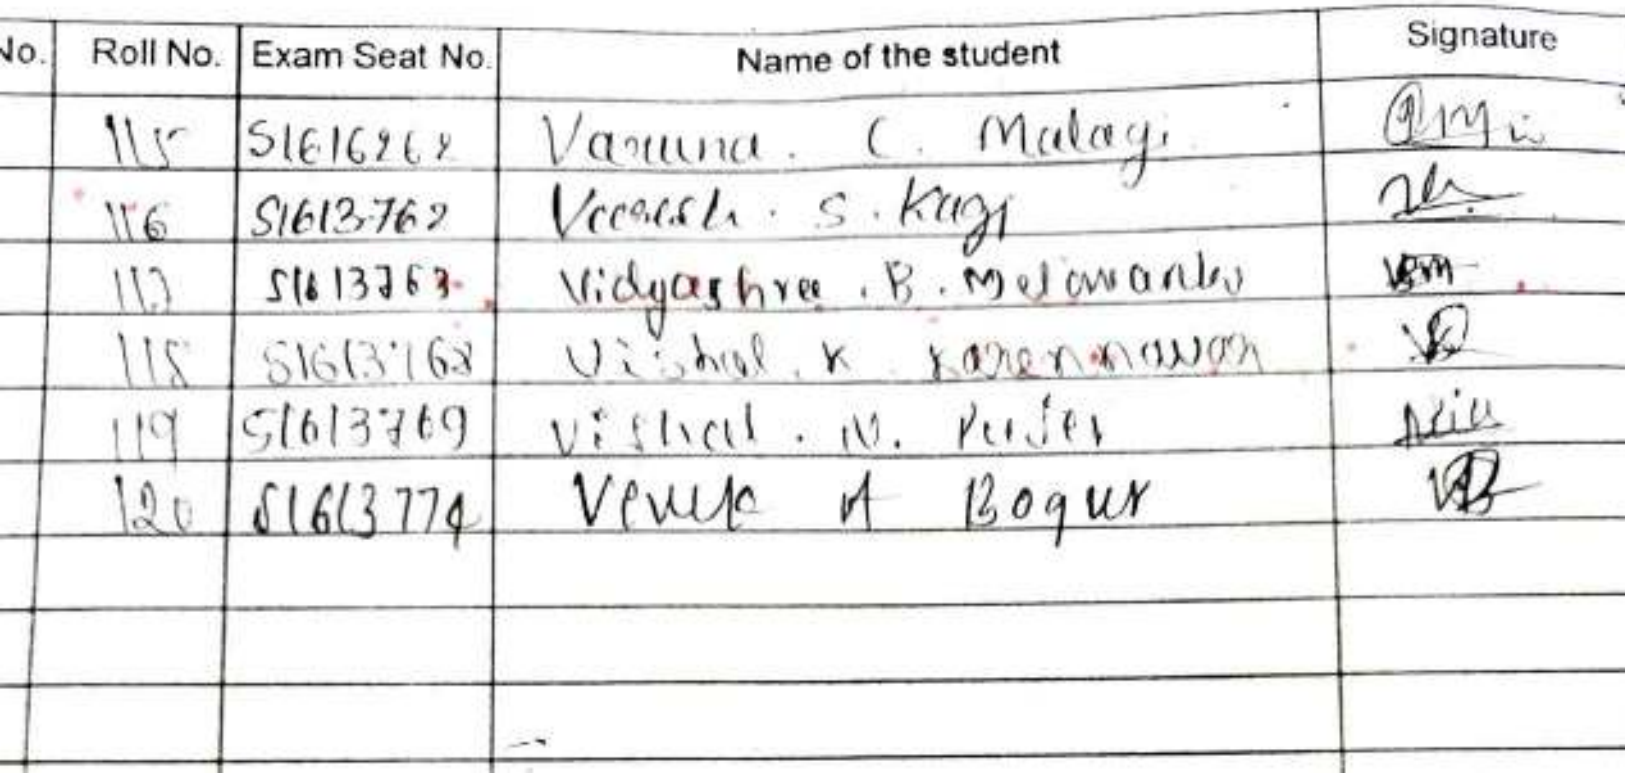 No. Roll No. Exam Seat No. Name of the student Signature
115 S1616262 Varuna. C. Malagi
116 S1613762 Veeresh. S. Kagi
117 S1613763 Vidyashree. B.
118 S1613768 Vishal. K Karennavar
119 S1613769 Vishal. N. Pujer
120 S1613774 A Bogur